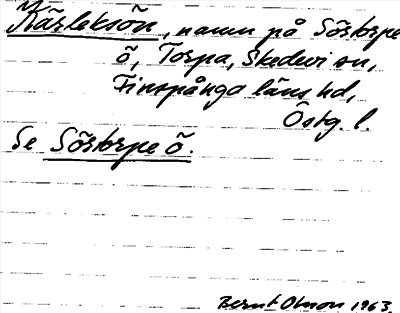 Kärleksön, namn på Sörtorpe
ö, Torpa, Skedevi sn,
Finspånga läns hd,
Östg. l.
Se Sörtorpe ö.
Bernt Olsson 1963